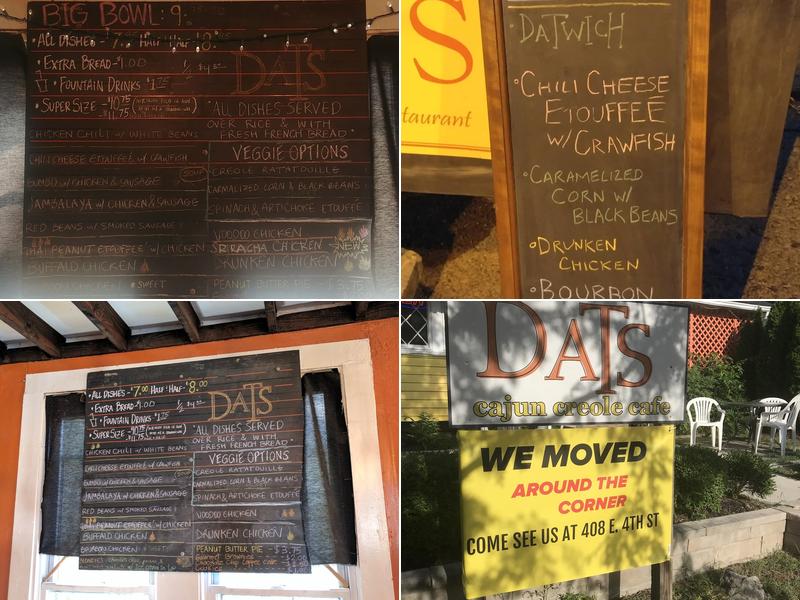 BIG BOWL: 9.
•ALL DISHES - $7.75 HALF 'HALF - $8.
• EXTRA BREAD - $1.00 1/2 $4.50
• FOUNTAIN DRINKS $1.75
• SUPER SIZE - $10.75
$11.75
DATS
"ALL DISHES SERVED
OVER RICE & WITH
FRESH FRENCH BREAD"
CHICKEN CHILI w/ WHITE BEANS
CHILI CHEESE ETOUFFEE w/ CRAWFISH
GUMBO w/ CHICKEN & SAUSAGE
SOUP
JAMBALAYA w/ CHICKEN & SAUSAGE
RED BEANS w/ SMOKED SAUSAGE
THAI PEANUT ETOUFFEE w/ CHICKEN
BUFFALO CHICKEN
CHICKEN SWEET
VEGGIE OPTIONS
CREOLE RATATOUILLE
CARMALIZED CORN & BLACK BEANS
SPINACH & ARTICHOKE ETOUFFÉ
VOODOO CHICKEN
SRIRACHA CHICKEN NEW
DRUNKEN CHICKEN
PEANUT BUTTER PIE - $3.75
S
taurant
DATWICH
•CHILI CHEESE
ETOUFFÉE
W/ CRAWFISH
•CARAMELIZED
CORN W/
BLACK BEANS
•DRUNKEN
CHICKEN
•BOURBON
•ALL DISHES - $7.00 HALF 'HALF - $8.00
•EXTRA BREAD - $1.00
•FOUNTAIN DRINKS - $1.75
•SUPER SIZE - $10.75
$11.75
DATS
"ALL DISHES SERVED
OVER RICE & WITH
FRESH FRENCH BREAD"
CHICKEN CHILI w/ WHITE BEANS
CHILI CHEESE ETOUFFEE w/ CRAWFISH
GUMBO w/ CHICKEN & SAUSAGE
JAMBALAYA w/ CHICKEN & SAUSAGE
RED BEANS w/ SMOKED SAUSAGE
THAI PEANUT ETOUFFEE w/ CHICKEN
BUFFALO CHICKEN
BOURBON CHICKEN SWEET
VEGGIE OPTIONS
CREOLE RATATOUILLE
CARMALIZED CORN & BLACK BEANS
SPINACH & ARTICHOKE ETOUFFÉ
VOODOO CHICKEN
DRUNKEN CHICKEN
PEANUT BUTTER PIE - $3.75
DATS
cajun creole cafe
WE MOVED
AROUND THE
CORNER
COME SEE US AT 408 E. 4TH ST